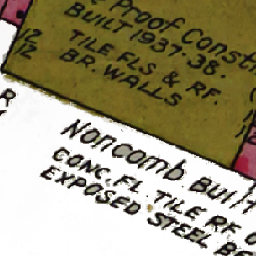 Proof Const
BUILT 1937-38.
TILE FLS & RF.
BR. WALLS
12
12
R
Noncomb. Built
CONC. FL. TILE RF
EXPOSED STEEL BE